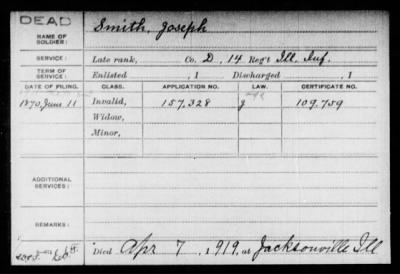 DEAD
NAME OF SOLDIER: Smith, Joseph
SERVICE: Late rank, Co. D, 14 Reg't Ill. Inf.
TERM OF SERVICE: Enlisted , 1 Discharged , 1
DATE OF FILING. CLASS. APPLICATION NO. LAW. CERTIFICATE NO.
1870, June 11 Invalid, 157,328 109,759
Widow,
Minor,
ADDITIONAL SERVICES:
REMARKS:
Died Apr 7, 1919, at Jacksonville Ill